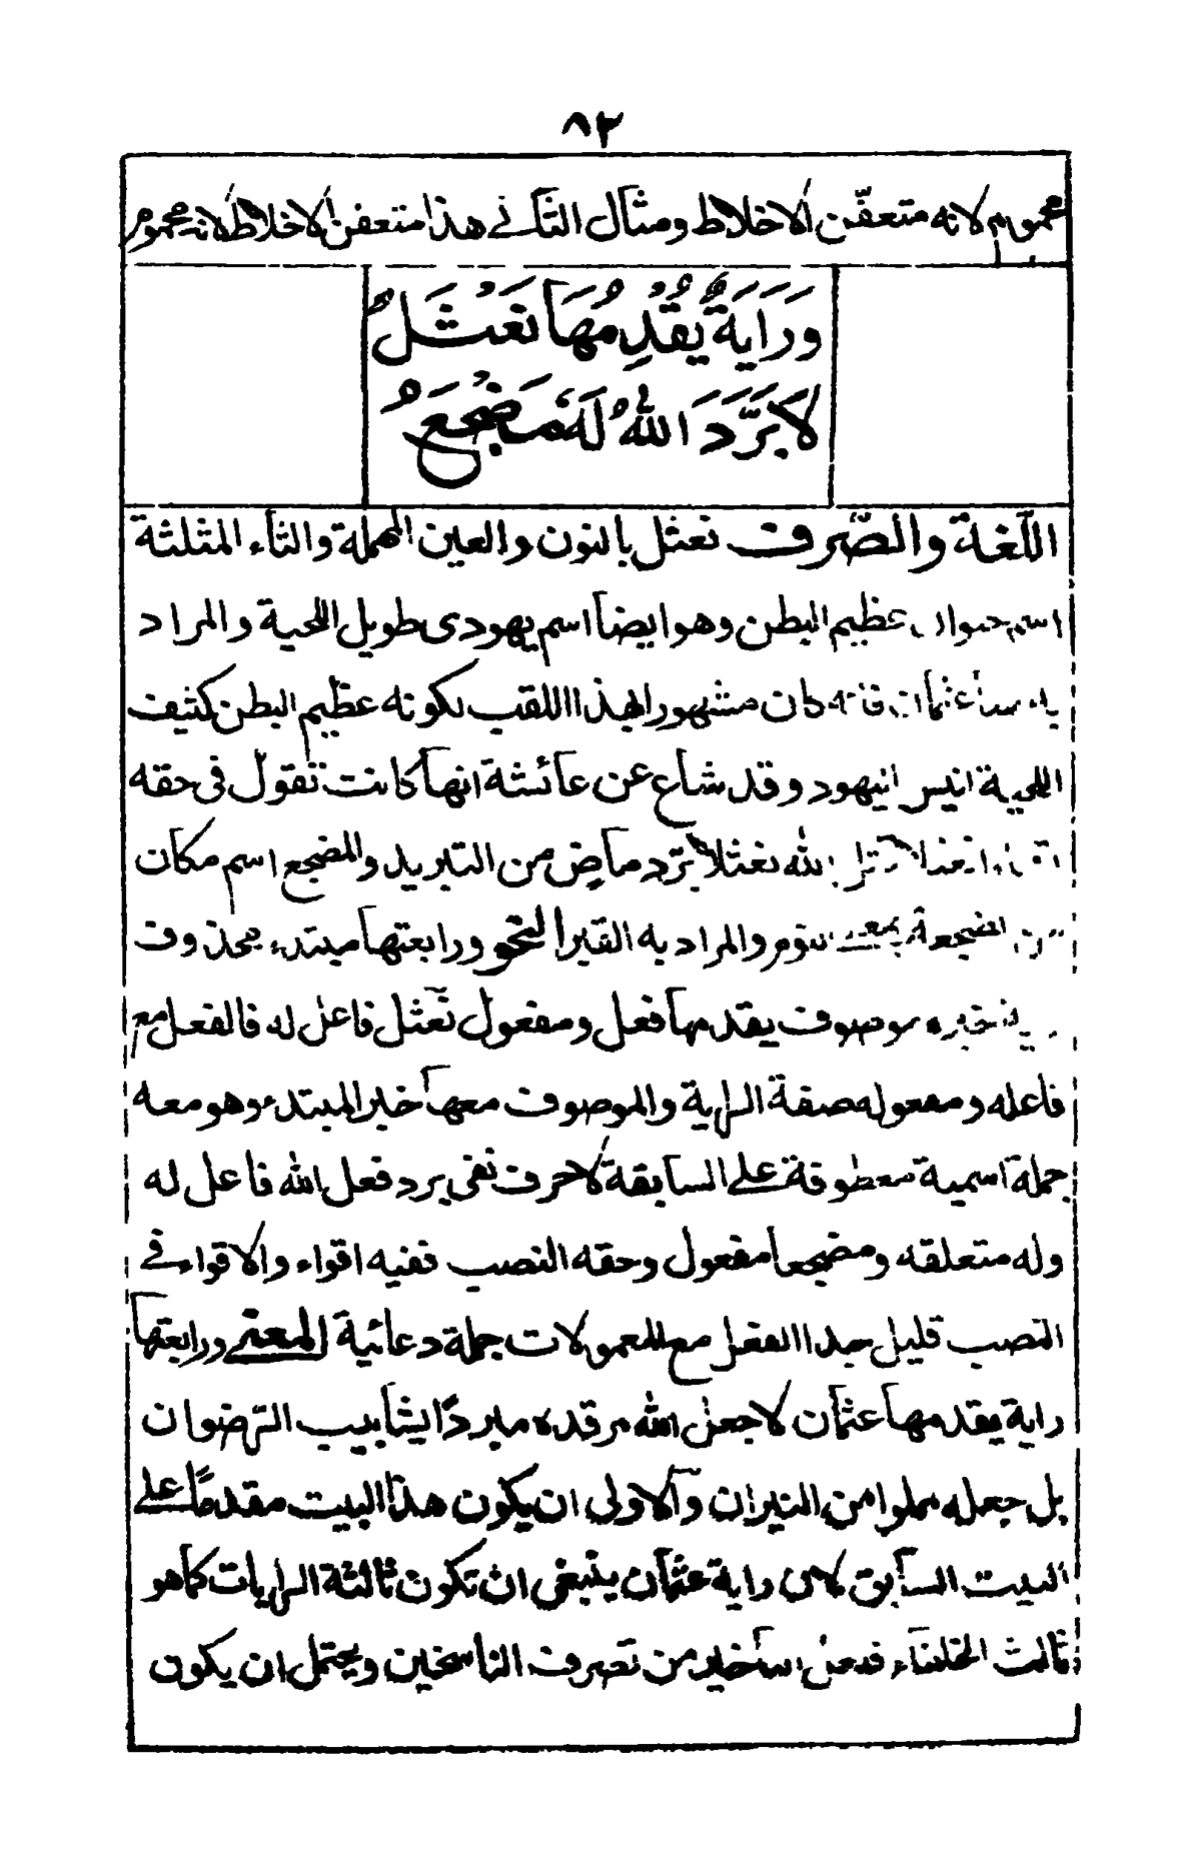 ٨٣
محموم لانه متعفّن الاخلاط ومثال الثانے هذا متعفن الاخلاط لانه محموم
وَرَايَةٌ يُقْدِمُهَا نَعْثَلُ
لَا بَرَّدَ اللهُ لَهُ مَضْجَعُ
اللّغة والصّرف نعثل بالنون والعين المهملة والثاء المثلثة
اسم حيوان عظيم البطن وهو ايضا اسم يهودى طويل اللحية والمراد
عثمان فانه كان مشهورا بهذا اللقب لكونه عظيم البطن كثيف
اللحية انيس اليهود وقد شاع عن عائشة انها كانت تقول فى حقه
نعثلا برّد ماض من التبريد والمضجع اسم مكان
الضجعة بمعنے النوم والمراد به القبر النحو ورابعتها مبتدء محذوف
خبره موصوف يقدمها فعل ومفعول نعثل فاعل له فالفعل مع
فاعله ومفعوله صفة الراية والموصوف معها خبر المبتدء وهو معه
جملة اسمية معطوفة علے السابقة لا حرف نفى برد فعل الله فاعل له
وله متعلقه ومضجعا مفعول وحقه النصب ففيه اقواء والاقواء فے
النصب قليل جدا الفعل مع المعمولات جملة دعائية المعنے ورابعتها
راية يقدمها عثمان لا جعل الله مرقده مبردًا بشأبيب الرّضوان
بل جعله مملوا من النيران والاولى ان يكون هذا البيت مقدمًا علے
البيت السابق لان راية عثمان ينبغى ان تكون ثالثة الرايات كما هو
ثالث الخلفاء فلعل التأخير من تصرف الناسخين ويحتمل ان يكون